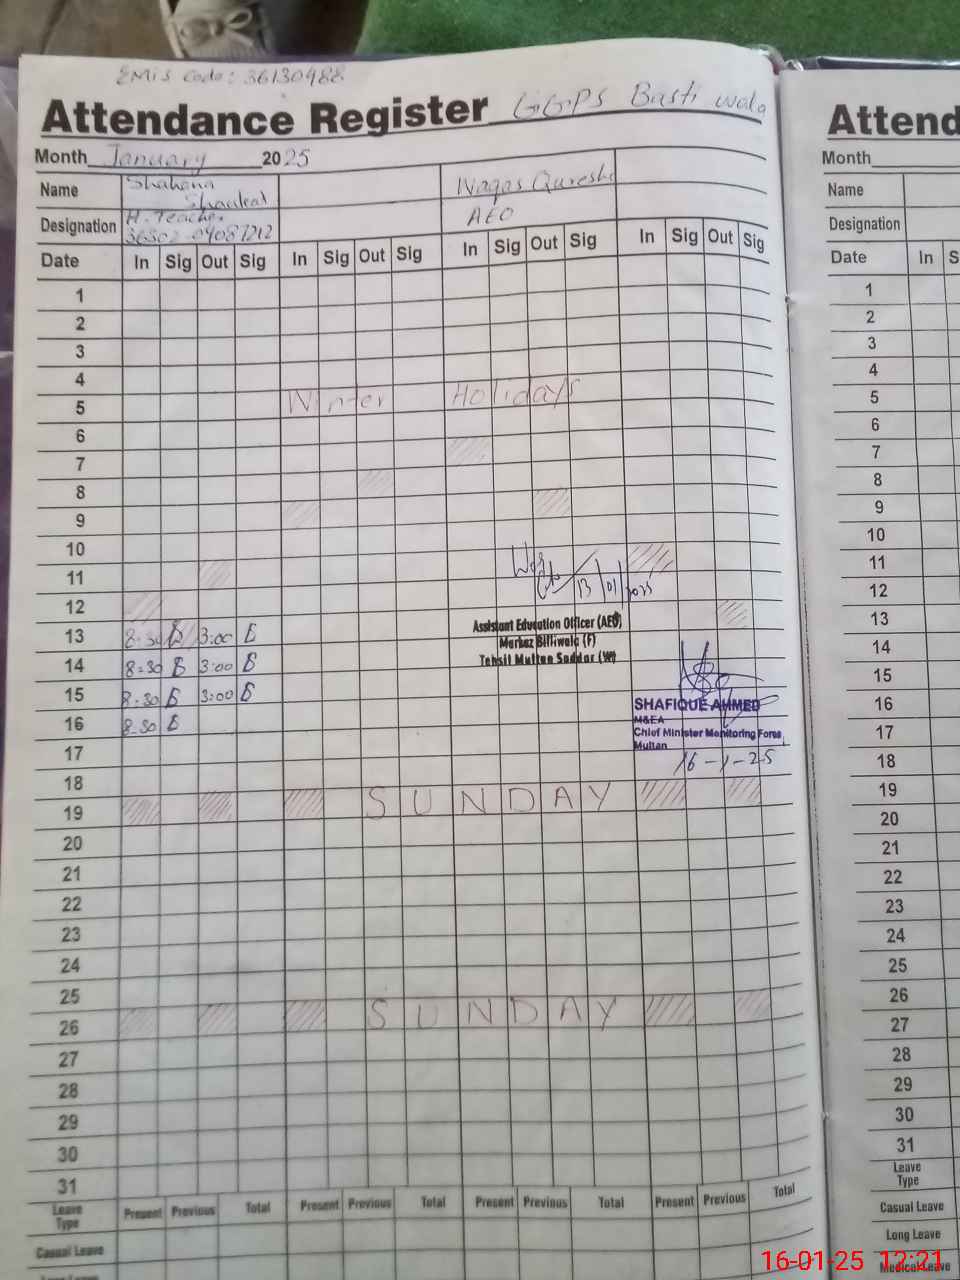 EMIS Code: 36130488
Attendance Register GGPS Basti wala
Month January 2025
Name Shahana Shaukat Waqas Qureshi
Designation H. Teacher AEO
36302-09081212
Date In Sig Out Sig In Sig Out Sig In Sig Out Sig In Sig Out Sig
1
2
3
4
5 Winter Holidays
6
7
8
9
10
11
12
13/01/2025
13 8:30 3:00
Assistant Education Officer (AEO)
Markaz Billiwala (F)
Tehsil Multan Saddar (W)
14 8:30 3:00
15 8:30 3:00
16 8:30
SHAFIQUE AHMED
M&EA
Chief Minister Monitoring Force
Multan
16-1-25
17
18
19 SUNDAY
20
21
22
23
24
25
26 SUNDAY
27
28
29
30
31
Leave Type Present Previous Total Present Previous Total Present Previous Total Present Previous Total
Casual Leave
Attend
Month
Name
Designation
Date In S
1
2
3
4
5
6
7
8
9
10
11
12
13
14
15
16
17
18
19
20
21
22
23
24
25
26
27
28
29
30
31
Leave Type
Casual Leave
Long Leave
Medical Leave
16-01-25 12:21